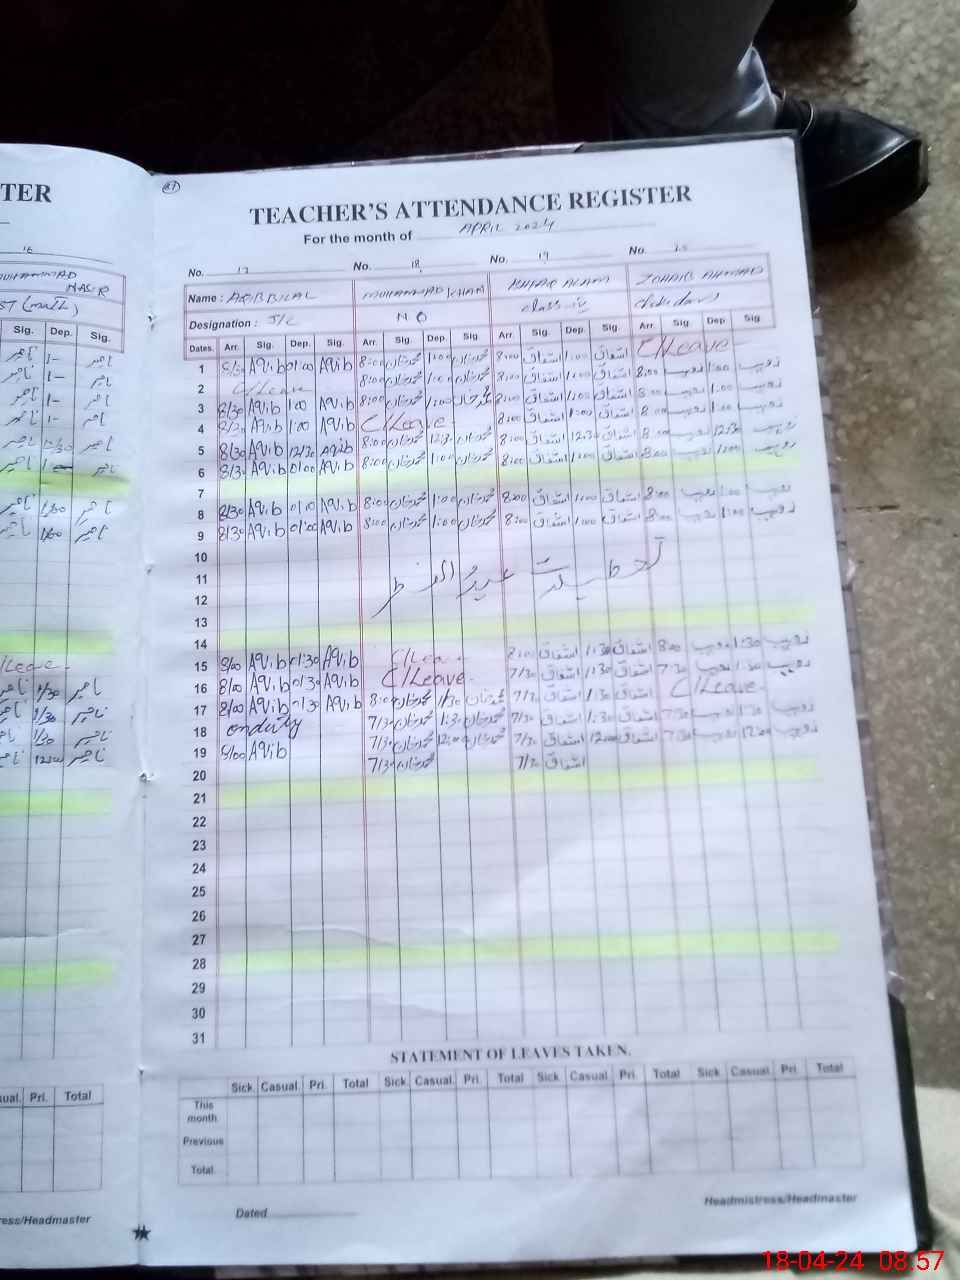 TER
TEACHER'S ATTENDANCE REGISTER
For the month of APRIL 2024
16
No. 17 No. 18 No. 19 No. 20
MUHAMMAD NASIR
Name : AQIB BILAL MUHAMMAD KHAN ZOHAIB AHMAD
ST (math)
Designation : J/C class iv
Sig. Dep. Sig.
Dates. Arr. Sig. Dep. Sig. Arr. Sig. Dep. Sig. Arr. Sig. Dep. Sig. Arr. Sig. Dep. Sig.
1 8/30 AQib 01:00 AQib 8:00 محمدخان 1:00 محمدخان 8:00 اشفاق 1:00 اشفاق C/Leave
2 C/Leave 8:00 محمدخان 1:00 محمدخان 8:00 اشفاق 1:00 اشفاق 8:00 زوہیب 1:00 زوہیب
3 8/30 AQib 1:00 AQib 8:00 محمدخان 1:00 محمدخان 8:00 اشفاق 1:00 اشفاق 8:00 زوہیب 1:00 زوہیب
4 8/30 AQib 1:00 AQib C/Leave 8:00 اشفاق 1:00 اشفاق 8:00 زوہیب 1:00 زوہیب
5 8/30 AQib 12/30 AQib 8:00 محمدخان 12:30 محمدخان 8:00 اشفاق 12:30 اشفاق 8:00 زوہیب 12:30 زوہیب
6 8/30 AQib 01:00 AQib 8:00 محمدخان 1:00 محمدخان 8:00 اشفاق 1:00 اشفاق 8:00 زوہیب 1:00 زوہیب
7
8 8/30 AQib 01:00 AQib 8:00 محمدخان 1:00 محمدخان 8:00 اشفاق 1:00 اشفاق 8:00 زوہیب 1:00 زوہیب
9 8/30 AQib 01:00 AQib 8:00 محمدخان 1:00 محمدخان 8:00 اشفاق 1:00 اشفاق 8:00 زوہیب 1:00 زوہیب
10
11 تعطیلات عید الفطر
12
13
14
15 8/00 AQib 01:30 AQib C/Leave 8:00 اشفاق 1:30 اشفاق 8:00 زوہیب 1:30 زوہیب
16 8/00 AQib 01:30 AQib C/Leave 7/30 اشفاق 1:30 اشفاق 7:30 زوہیب 1:30 زوہیب
17 8/00 AQib 01:30 AQib 8:00 محمدخان 1/30 محمدخان 7/30 اشفاق 1:30 اشفاق C/Leave
18 onduty 7/30 محمدخان 1:30 محمدخان 7/30 اشفاق 1:30 اشفاق 7/30 زوہیب 1:30 زوہیب
19 8/00 AQib 7/30 محمدخان 12:00 محمدخان 7/30 اشفاق 12:00 اشفاق 7/30 زوہیب 12:00 زوہیب
20 7/30 محمدخان 7/30 اشفاق
21
22
23
24
25
26
27
28
29
30
31
STATEMENT OF LEAVES TAKEN.
Pri. Total
Sick. Casual. Pri. Total Sick. Casual. Pri. Total Sick. Casual. Pri. Total Sick. Casual. Pri. Total
This month
Previous
Total
ress/Headmaster
Dated
Headmistress/Headmaster
18-04-24 08:57